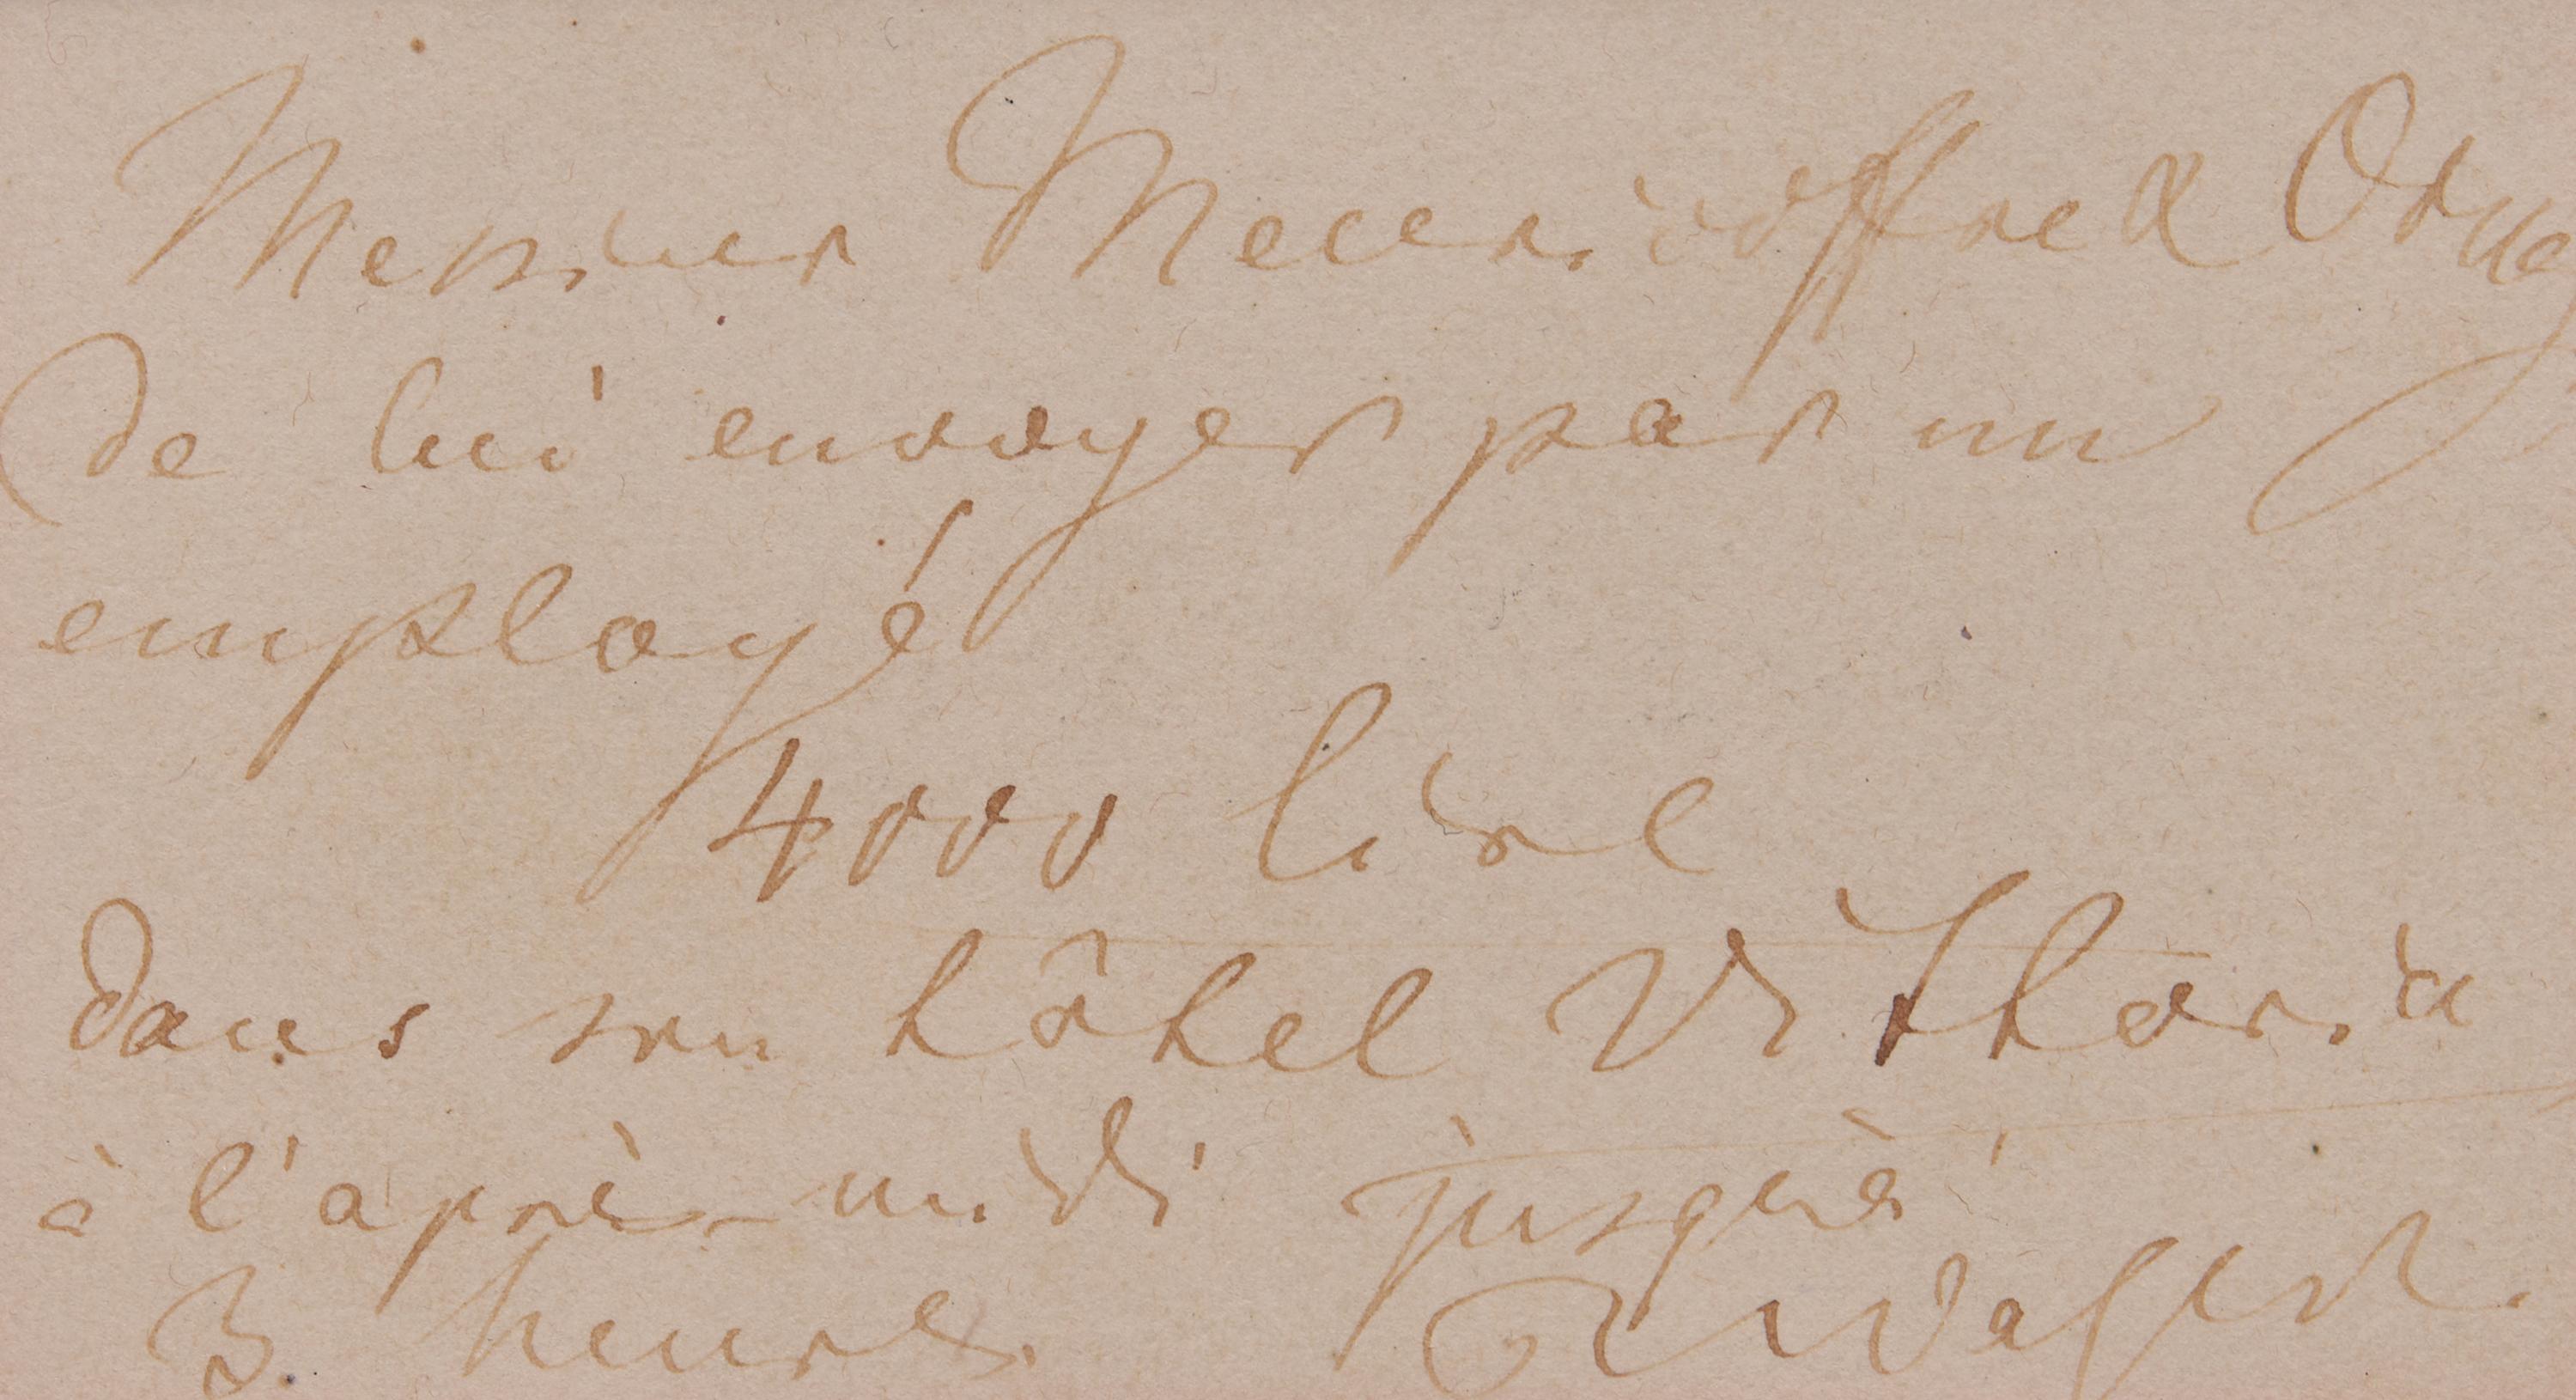 Messieurs Meuricoffre &
de lui envoyer par un
employé
4000 lire
dans son hôtel Vittoria
à l'après-midi jusqu'à
3. heures. RWagner.